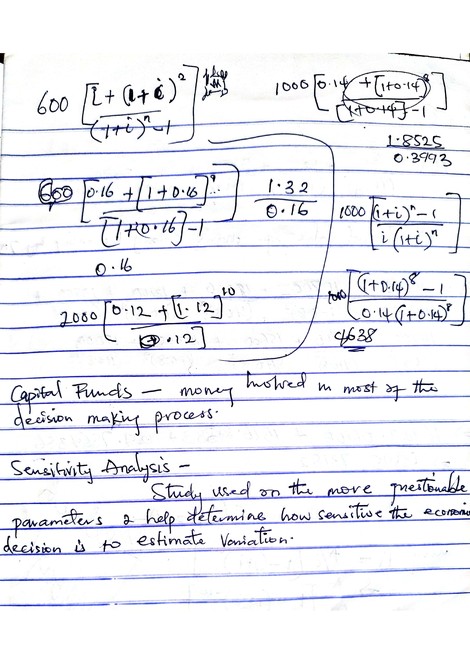 600 [i + (1 + i)²
(1+i)ⁿ - 1 ]
1000 [0.14 + [1+0.14]⁸
[1+0.14] - 1 ]
1.8525
0.3993
600 [0.16 + [1 + 0.16]⁹
[1+0.16] - 1 ]
1.32
0.16
0.16
1000 [(1+i)ⁿ - 1
i (1+i)ⁿ ]
2000 [0.12 + [1.12]¹⁰
.12]
1000 [(1+0.14)⁸ - 1
0.14 (1+0.14)⁸ ]
4638
Capital Funds — money involved in most of the
decision making process.
Sensitivity Analysis -
Study used on the more questionable
parameters & help determine how sensitive the economic
decision is to estimate variation.